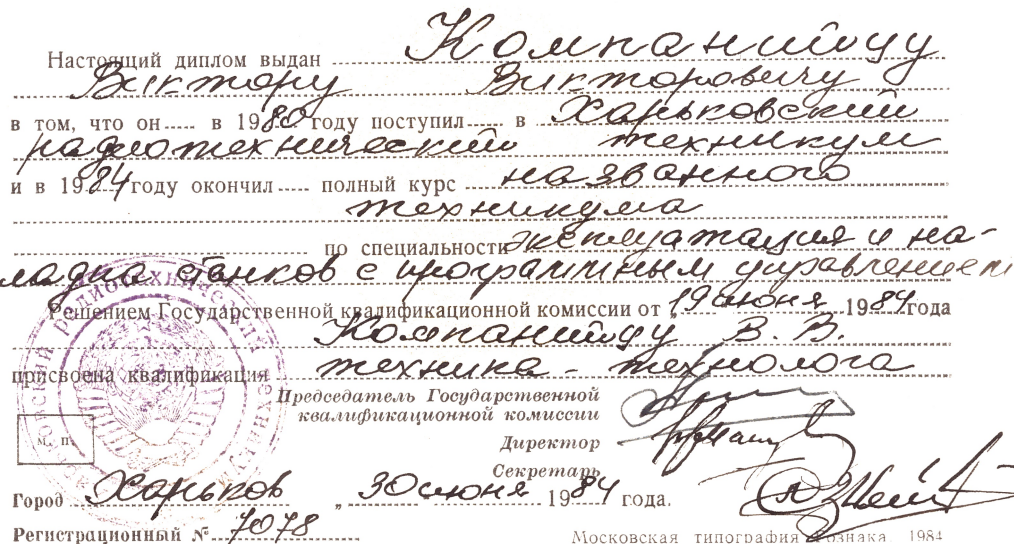 Настоящий диплом выдан Компанийцу
Виктору Викторовичу
в том, что он в 1980 году поступил в Харьковский
радиотехнический техникум
и в 1984 году окончил полный курс названного
техникума
по специальности эксплуатация и на-
ладка станков с программным управлением
Решением Государственной квалификационной комиссии от „19 июня 1984 года
Компанийцу В. В.
присвоена квалификация техника - технолога
Председатель Государственной
квалификационной комиссии
Директор
М. П.
Секретарь
Город Харьков „30 июня 1984 года.
Регистрационный № 7078
Московская типография Гознака. 1984